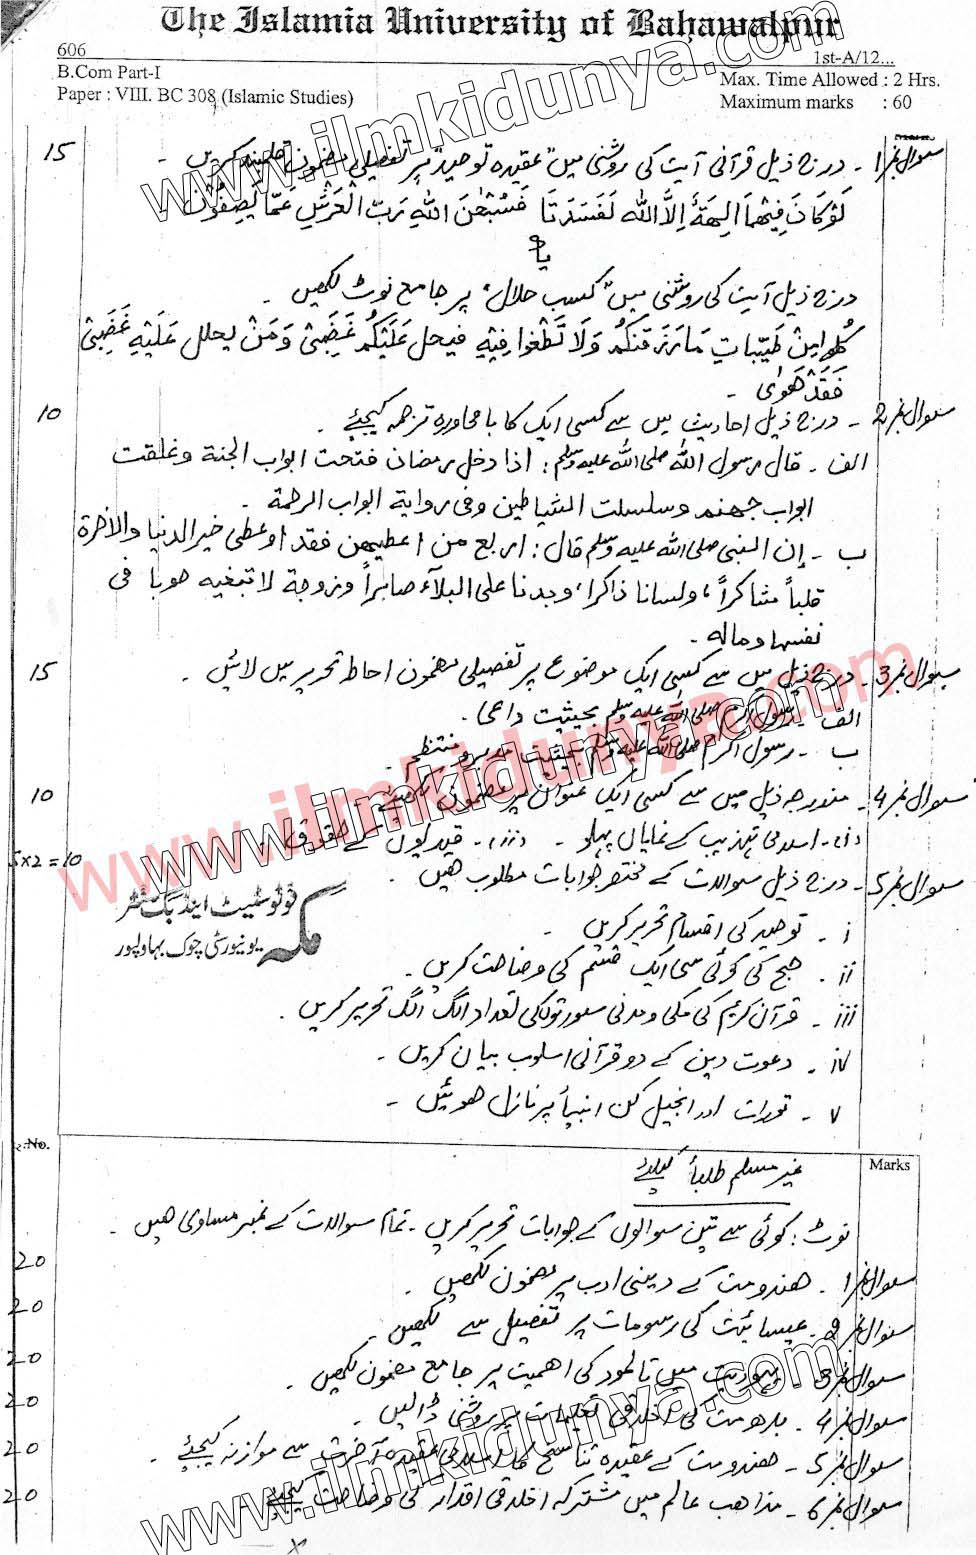 The Islamia University of Bahawalpur
606
1st-A/12...
B.Com Part-I
Max. Time Allowed : 2 Hrs.
Paper : VIII. BC 308 (Islamic Studies)
Maximum marks : 60
www.ilmkidunya.com
سوال نمبر 1۔ درج ذیل قرآنی آیت کی روشنی میں "عقیدہ توحید" پر تفصیلی مضمون قلمبند کریں۔ 15
لَوْ كَانَ فِيْهِمَا اٰلِهَةٌ اِلَّا اللّٰه لَفَسَدَتَا فَسُبْحٰنَ اللّٰهِ رَبِّ الْعَرْشِ عَمَّا يَصِفُوْنَ
یا
درج ذیل آیت کی روشنی میں "کسب حلال" پر جامع نوٹ لکھیں۔
كُلُوا مِنْ طَيِّبَاتِ مَا رَزَقْنٰكُمْ وَلَا تَطْغَوا فِيْهِ فيحل عَلَيْكُمْ غَضَبِيْ وَمَنْ يحلل عَلَيْهِ غَضَبِيْ
فَقَدْ هَوٰى۔
سوال نمبر 2۔ درج ذیل احادیث میں سے کسی ایک کا بامحاورہ ترجمہ کیجئے۔ 10
الف۔ قال رسول اللہ صلی اللہ علیہ وسلم: اذا دخل رمضان فتحت ابواب الجنة وغلقت
ابواب جهنم وسلسلت الشياطين وفى رواية ابواب الرحمة۔
ب۔ إن النبى صلی اللہ علیہ وسلم قال: اربع من اعطيهن فقد اوعطى خير الدنيا والاخرة
قلباً شاكراً، ولسانا ذاكرا، وبدنا على البلاء صابراً وزوجة لا تبغيه حوبا فى
نفسها وماله۔
سوال نمبر 3۔ درج ذیل میں سے کسی ایک موضوع پر تفصیلی مضمون احاطہ تحریر میں لائیں۔ 15
الف۔ رسول اکرم صلی اللہ علیہ وسلم بحیثیت داعی۔
ب۔ رسول اکرم صلی اللہ علیہ وسلم بحیثیت مدبر و منتظم۔
www.ilmkidunya.com
سوال نمبر 4۔ مندرجہ ذیل میں سے کسی ایک عنوان پر مضمون لکھیئے۔ 10
(i)۔ اسلامی تہذیب کے نمایاں پہلو۔ (ii)۔ قیدیوں کے حقوق۔
سوال نمبر 5۔ درج ذیل سوالات کے مختصر جوابات مطلوب ھیں۔ 5x2=10
i۔ توحید کی اقسام تحریر کریں۔
ii۔ حج کی کوئی سی ایک قسم کی وضاحت کریں۔
iii۔ قرآن کریم کی مکی و مدنی سورتوں کی تعداد الگ الگ تحریر کریں۔
iv۔ دعوت دین کے دو قرآنی اسلوب بیان کریں۔
v۔ تورات اور انجیل کن انبیاء پر نازل ھوئیں۔
مکہ فوٹوسٹیٹ اینڈ بک سنٹر
یونیورسٹی چوک بہاولپور
No.
Marks
غیر مسلم طلباء کیلئے
نوٹ: کوئی سے تین سوالوں کے جوابات تحریر کریں۔ تمام سوالات کے نمبر مساوی ھیں۔
سوال نمبر 1۔ ھندومت کے دینی ادب پر مضمون لکھیں۔ 20
سوال نمبر 2۔ عیسائیت کی رسومات پر تفصیل سے لکھیں۔ 20
سوال نمبر 3۔ یہودیت میں تالمود کی اھمیت پر جامع مضمون لکھیں۔ 20
سوال نمبر 4۔ بدھ مت کی اخلاقی تعلیمات پر روشنی ڈالیں۔ 20
سوال نمبر 5۔ ھندومت کے عقیدہ تناسخ کا اسلامی عقیدہ آخرت سے موازنہ کیجئے۔ 20
سوال نمبر 6۔ مذاھب عالم میں مشترکہ اخلاقی اقدار کی وضاحت کیجئے۔ 20
www.ilmkidunya.com